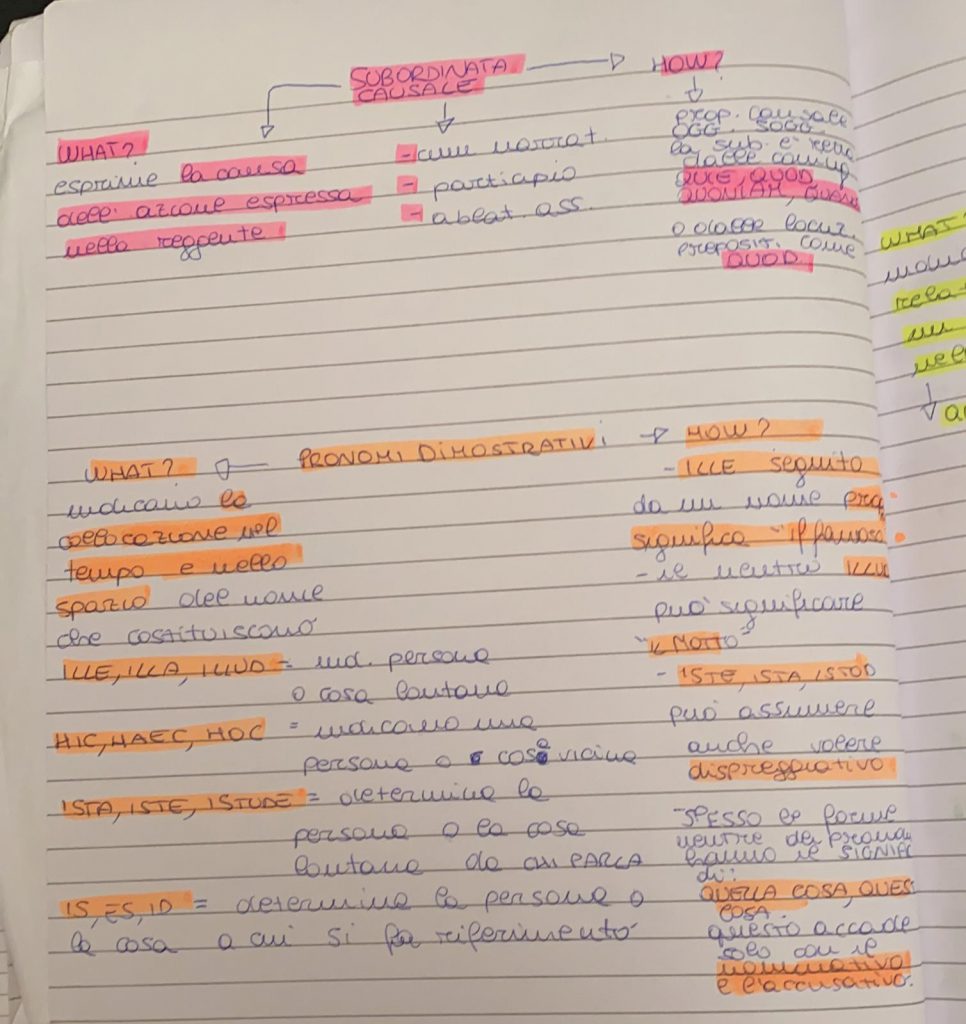 SUBORDINATA
CAUSALE
WHAT?
esprime la causa
dell' azione espressa
nella reggente
- cum narrat.
- participio
- ablat. ass.
HOW?
prop. causale
OGG. SOGG.
la sub. è
dalle
QUIE, QUOD
QUONIAM,
o dalle locuz.
preposit. come
QUOD
PRONOMI DIMOSTRATIVI
WHAT?
indicano la
collocazione nel
tempo e nello
spazio del nome
che costituiscono
ILLE, ILLA, ILLUD = ind. persona
o cosa lontana
HIC, HAEC, HOC = indicano una
persona o cosa vicina
ISTA, ISTE, ISTUDE = determina la
persona o la cosa
lontana da chi PARLA
IS, ES, ID = determina la persona o
la cosa a cui si fa riferimento
HOW?
- ILLE seguito
da un nome
significa "il famoso
- il neutro
può significare
"IL MOTTO"
- ISTE, ISTA, ISTOD
può assumere
anche valore
dispreggiativo
- SPESSO le forme
neutre dei
hanno il
di:
QUELLA COSA, QUES
COSA.
questo accade
solo con il
nominativo
e l'accusativo.
WHAT?